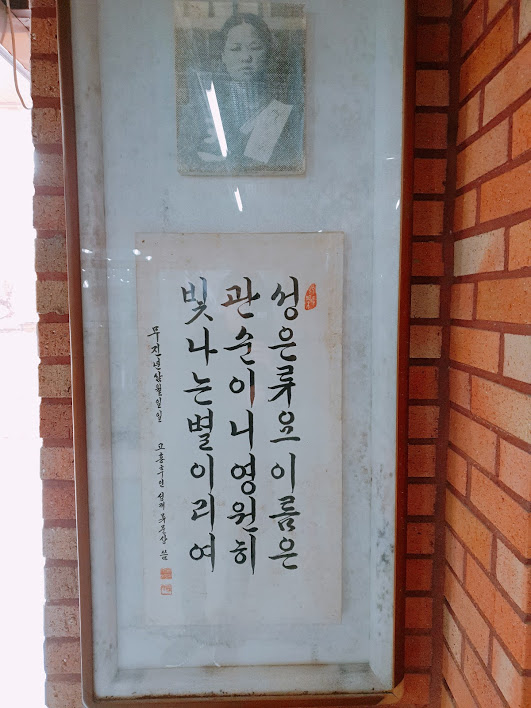 성은류요이름은
관순이니영원히
빛나는별이리여
무진년삼월일일 고흥후인 씀